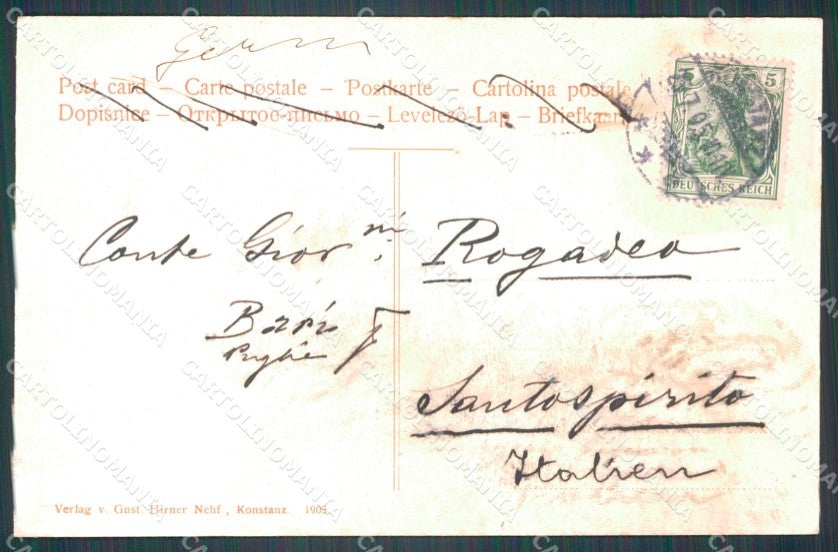 Germ
Post card – Carte postale – Postkarte – Cartolina postale
Dopisnice – Открытое-письмо – Levelező-Lap – Briefkaart
5 5
DEUTSCHES REICH
Conte Giovni. Rogadeo
Bari
Puglie
Santospirito
Italien
Verlag v. Gust. Hirner Nchf., Konstanz. 1905.
CARTOLINOMANIA